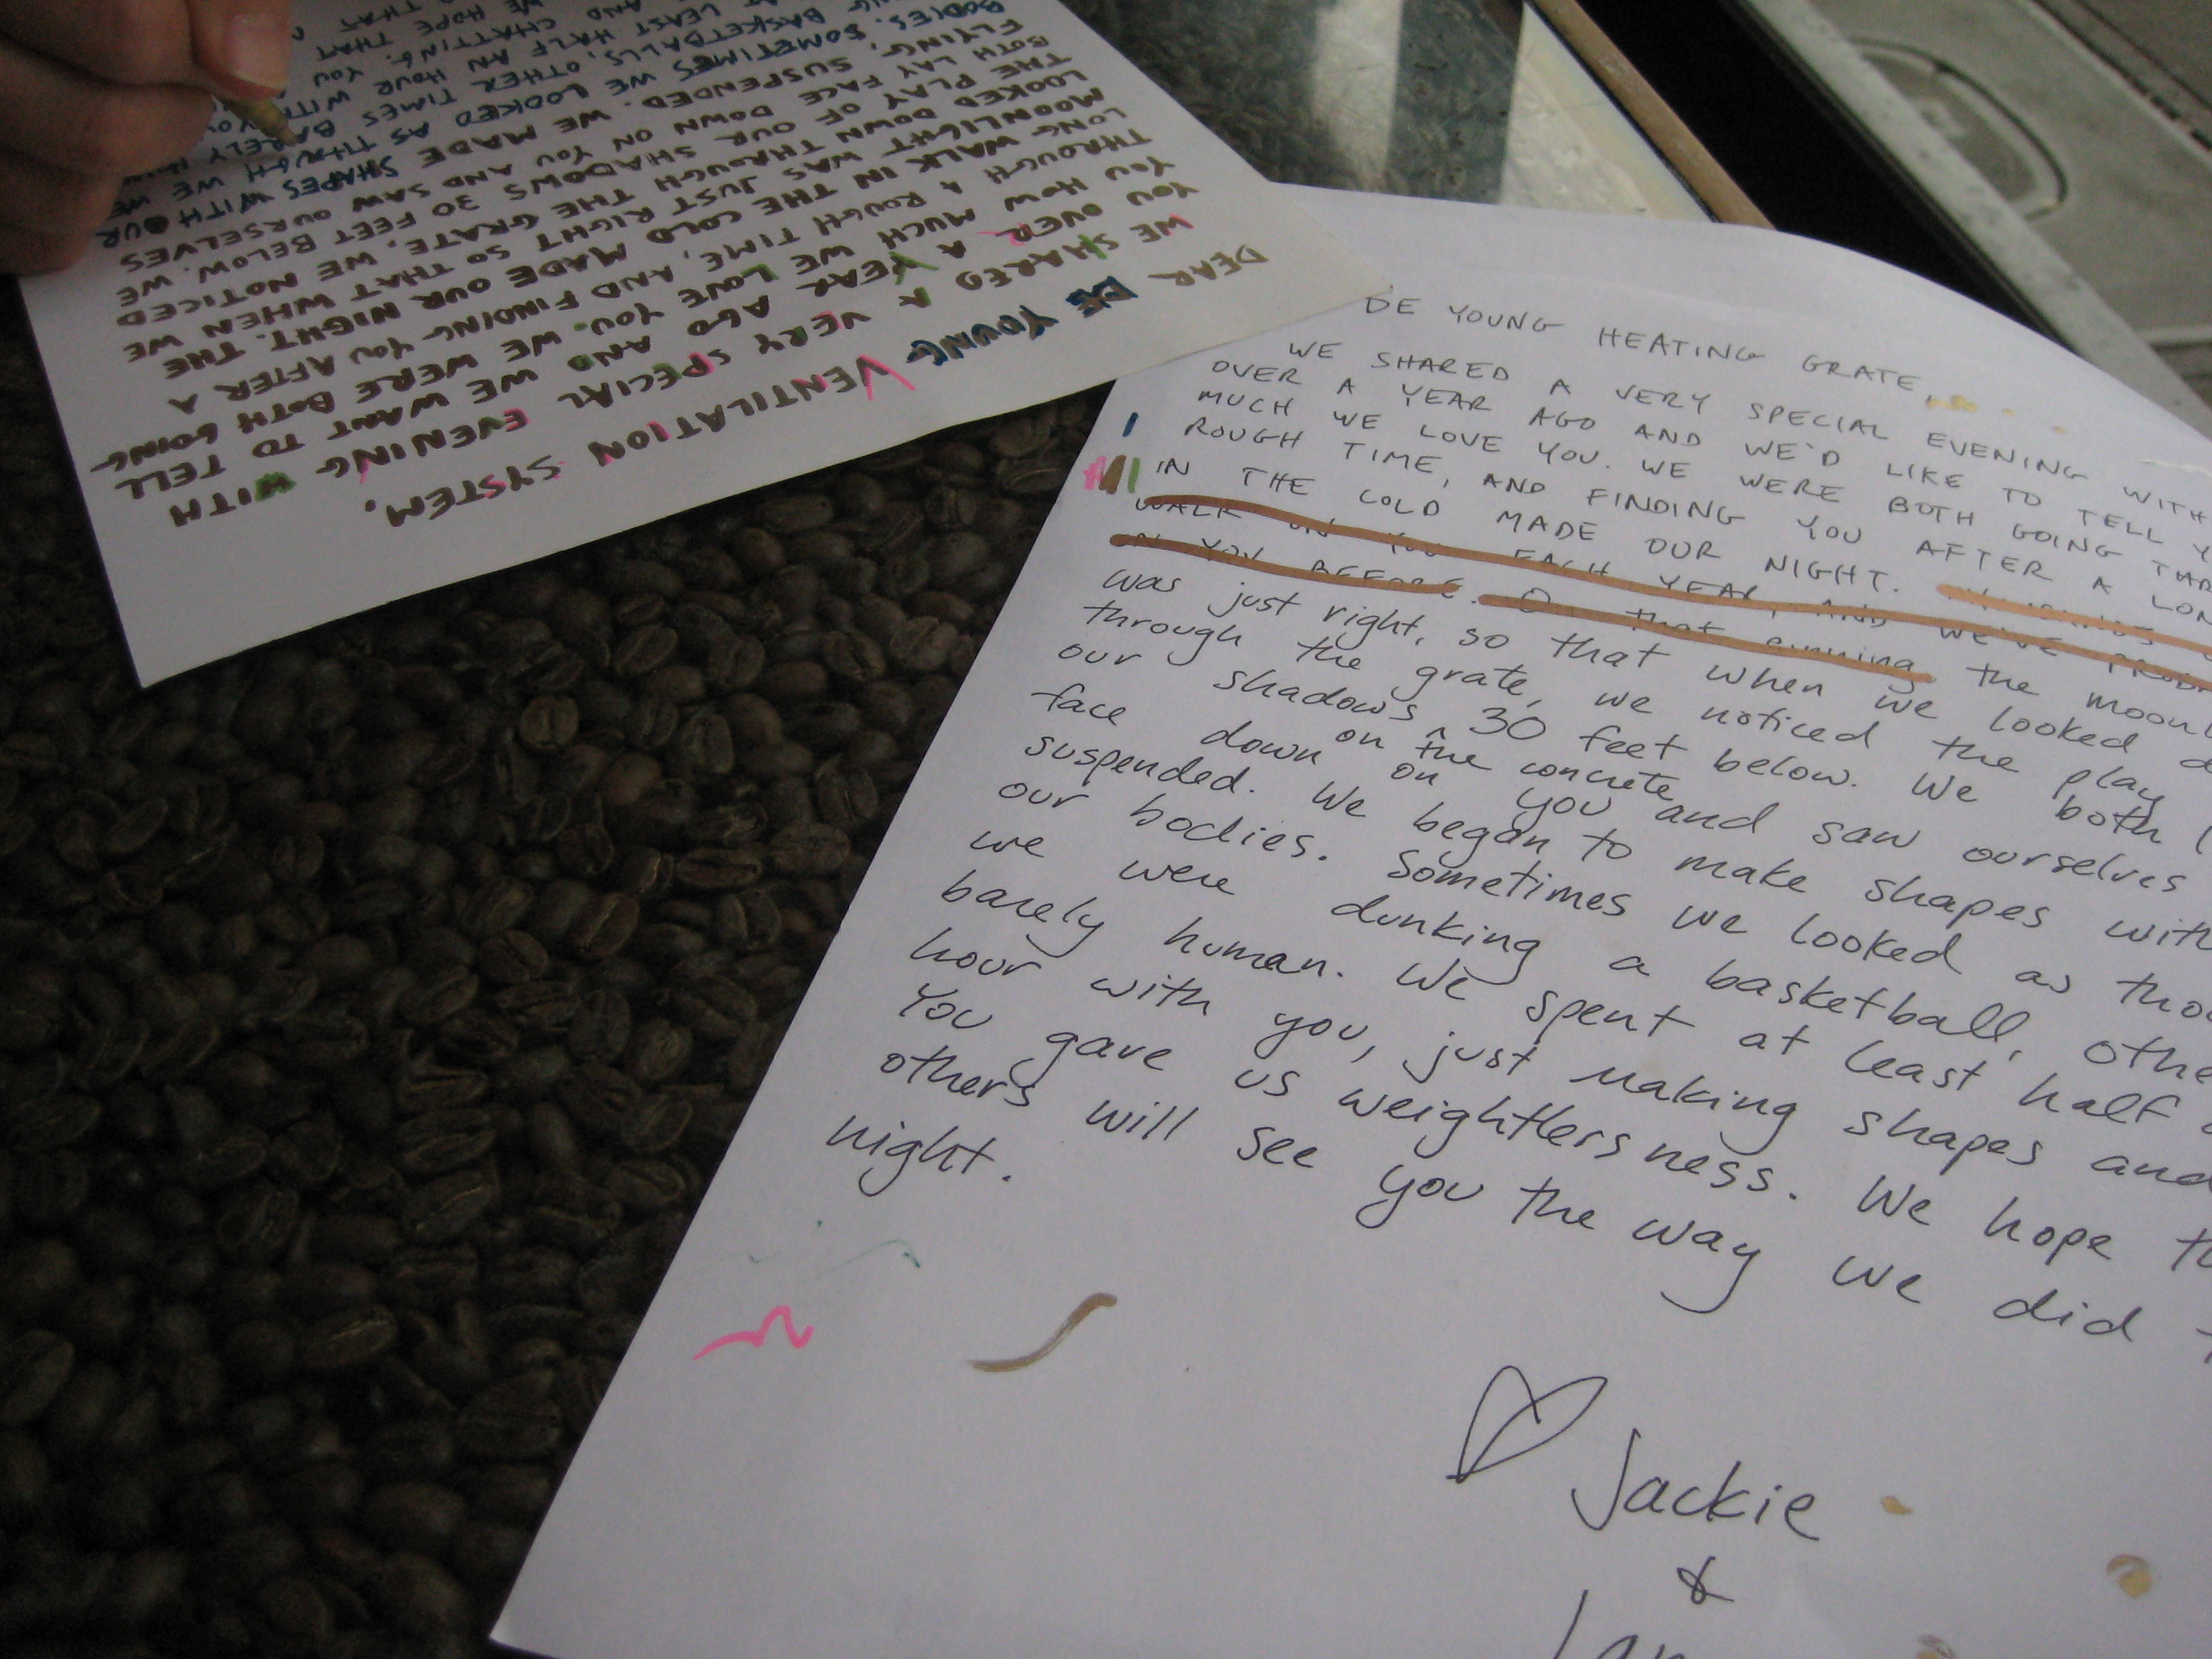 DE YOUNG HEATING GRATE,
WE SHARED A VERY SPECIAL EVENING WITH
OVER A YEAR AGO AND WE'D LIKE TO TELL Y
MUCH WE LOVE YOU. WE WERE BOTH GOING THR
ROUGH TIME, AND FINDING YOU AFTER A LON
IN THE COLD MADE OUR NIGHT.
WALK ON YOU EACH YEAR, AND WE'VE PROB
ON YOU BEFORE. On that evening the moonl
was just right, so that when we looked d
through the grate, we noticed the play
our shadows 30 feet below. We both l
on the concrete
face down on you and saw ourselves
suspended. We began to make shapes with
our bodies. Sometimes we looked as thou
we were dunking a basketball, othe
barely human. We spent at least half a
hour with you, just making shapes and
You gave us weightlessness. We hope th
others will see you the way we did t
night.
Jackie
&
Ian
DEAR DE YOUNG VENTILATION SYSTEM,
WE SHARED A VERY SPECIAL EVENING WITH
YOU OVER A YEAR AGO AND WE WANT TO TELL
YOU HOW MUCH WE LOVE YOU. WE WERE BOTH GOING
THROUGH A ROUGH TIME, AND FINDING YOU AFTER A
LONG WALK IN THE COLD MADE OUR NIGHT. THE
MOONLIGHT WAS JUST RIGHT SO THAT WHEN WE
LOOKED DOWN THROUGH THE GRATE, WE NOTICED
THE PLAY OF OUR SHADOWS 30 FEET BELOW. WE
BOTH LAY FACE DOWN ON YOU AND SAW OURSELVES
FLYING, SUSPENDED. WE MADE SHAPES WITH OUR
BODIES. SOMETIMES WE LOOKED AS THOUGH WE WE
BASKETBALLS, OTHER TIMES BARELY HUM
LEAST HALF AN HOUR WITH YOU
AND CHATTING. YOU
WE HOPE THAT
THAT